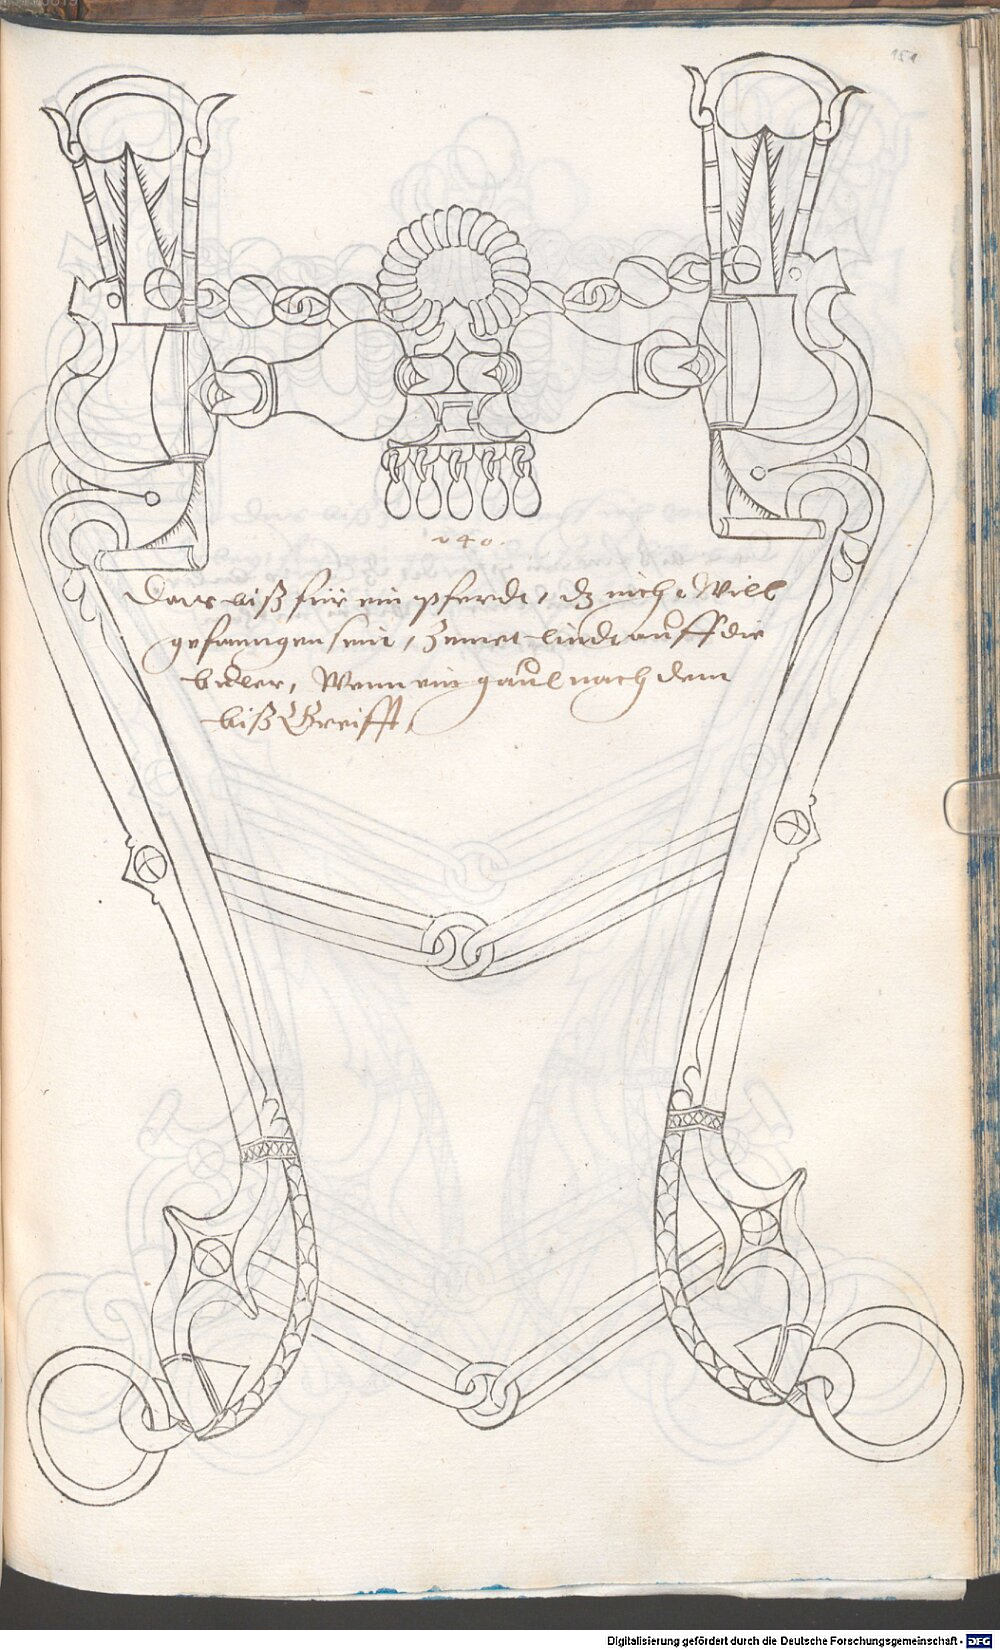 151
240.
Das biß für ein pferdt, dz nicht Will
gefanngen sein, Zimet lindt auff die
biler, Wenn ein gaul nach dem
biß Greifft,
Digitalisierung gefördert durch die Deutsche Forschungsgemeinschaft - DFG